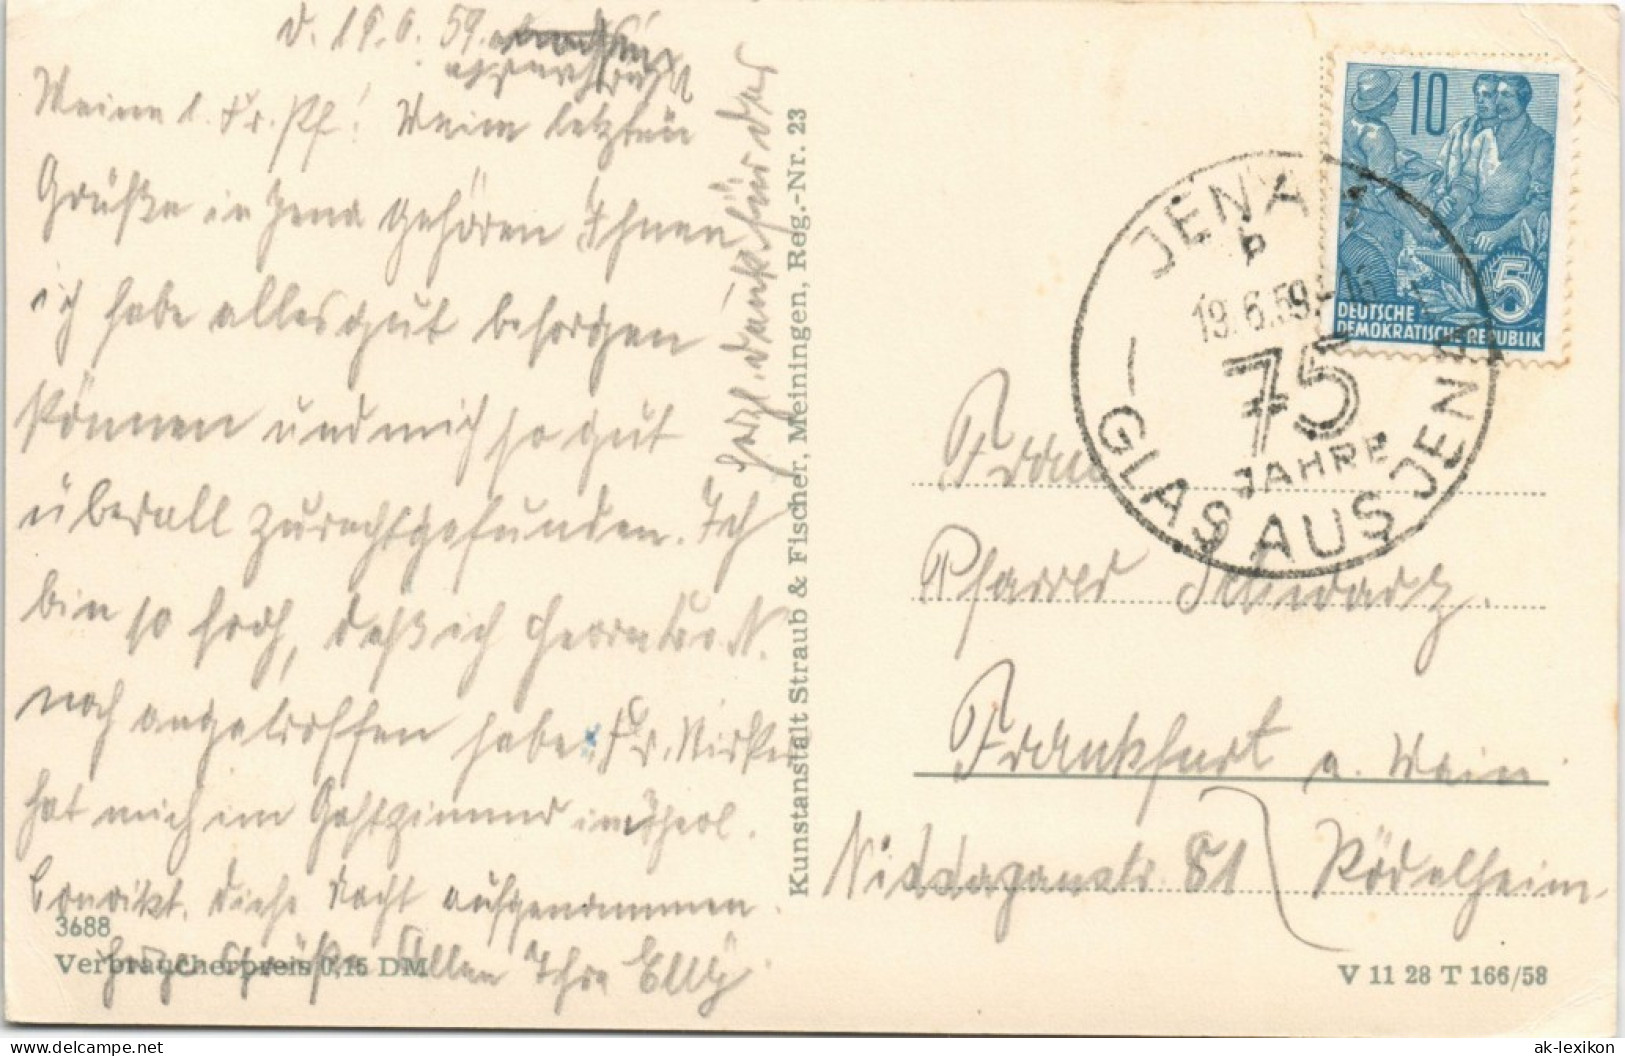 d. 19.6.59.
Meine l. Fr. Pf! Meine letzten
Grüße in Jena gehören Ihnen
ich habe alles gut besorgen
können und mich so gut
überall zurechtgefunden. Ich
bin so froh, daß ich
noch angetroffen habe. Fr.
hat mich im Gastzimmer
diese Nacht aufgenommen
Grüße Allen Ihre Elly
herzl. Dank für das
Kunstanstalt Straub & Fischer, Meiningen, Reg.-Nr. 23
3688
Verbraucherpreis 0,15 DM
10
5
DEUTSCHE
DEMOKRATISCHE REPUBLIK
JENA 1
b
19.6.59.
75
JAHRE
GLAS AUS JENA
Frau
Pfarrer Schwarz.
Frankfurt a. Main
51 Rödelheim.
V 11 28 T 166/58
ak-lexikon